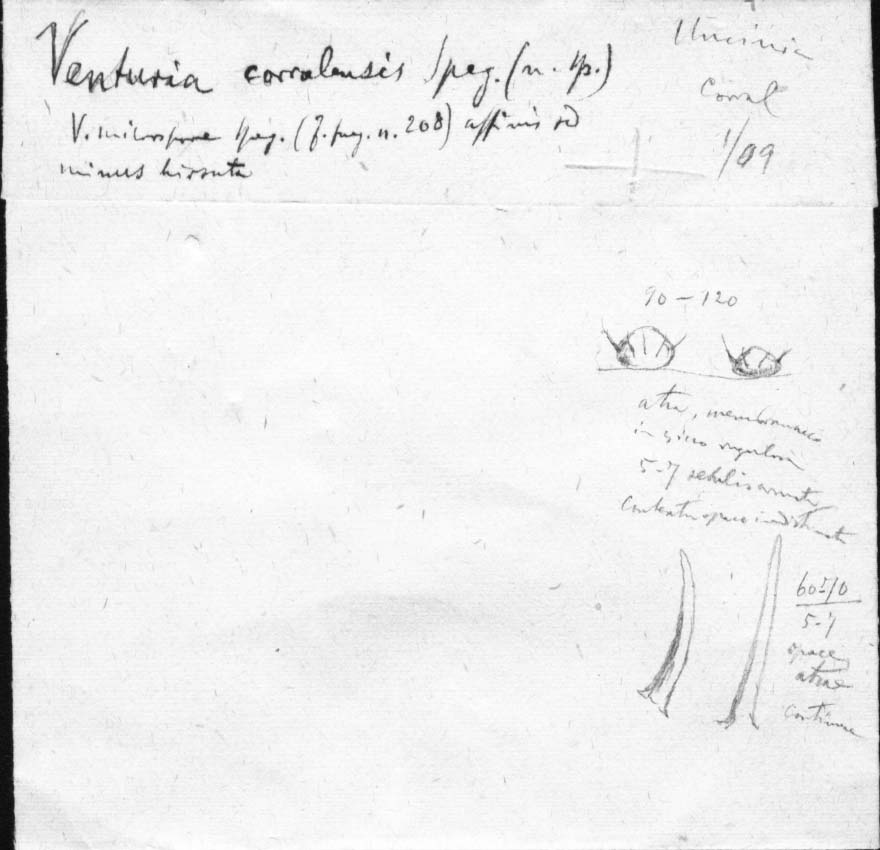 Venturia corralensis Speg. (n. sp.)
V. microspora Speg. (F. fueg. n. 208) affinis sed
minus hirsuta
Uncinia
Corral
1/99
90–120
atra, membranacea
in sicco rugulosa
5-7 setulis armata
contextu opaco indistincto
60-70
5-7
opace
atrae
continuae